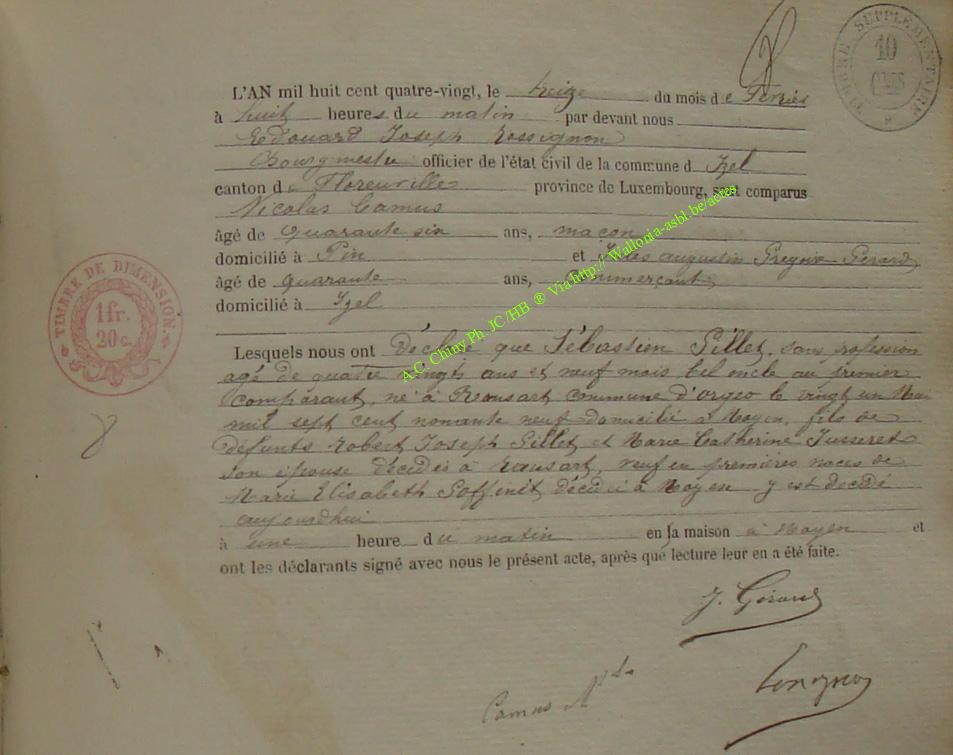 TIMBRE SUPPLÉMENTAIRE
10
CMES
L'AN mil huit cent quatre-vingt, le treize du mois de Fevrier
à huit heures du matin par devant nous
Edouard Joseph Rossignon
Bourgmestre officier de l'état civil de la commune d Izel
canton de Florenville province de Luxembourg, sont comparus
Nicolas Camus
âgé de quarante six ans, maçon
domicilié à Pin et Jules augustin Gregoire Gerard
âgé de quarante ans, Commerçant
domicilié à Izel
TIMBRE DE DIMENSION
1 fr.
20 c.
A.C. Chiny Ph. JC/HB ® Via http://Wallonia-asbl.be/actes
Lesquels nous ont déclaré que Sébastien Gillet, sans profession
agé de quatre vingts ans et neuf mois bel oncle au premier
comparant, né à Rausart commune d'orgeo le vingt un Mai
mil sept cent nonante neuf domicilié à Moyen, fils de
défunts Robert Joseph Gillet et Marie Catherine Jusseret
son épouse décédés à Rausart, veuf en premières noces de
Marie Elisabeth Goffinet décédée à Moyen y est decédé
aujourdhui
à une heure du matin en sa maison à Moyen et
ont les déclarants signé avec nous le présent acte, après que lecture leur en a été faite.
J. Gérard
Camus